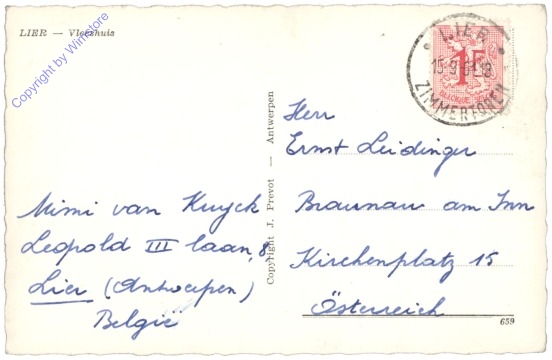 LIER — Vleeshuis
Copyright by Winstore
LIER
15-9 61 18
ZIMMERTOREN
1F
BELGIQUE BELGIE
Copyright J. Prevot — Antwerpen
Herr
Ernst Leidinger
Braunau am Inn
Kirchenplatz 15
Österreich
Mimi van Kuyck
Leopold III laan, 8
Lier (Antwerpen)
België
659